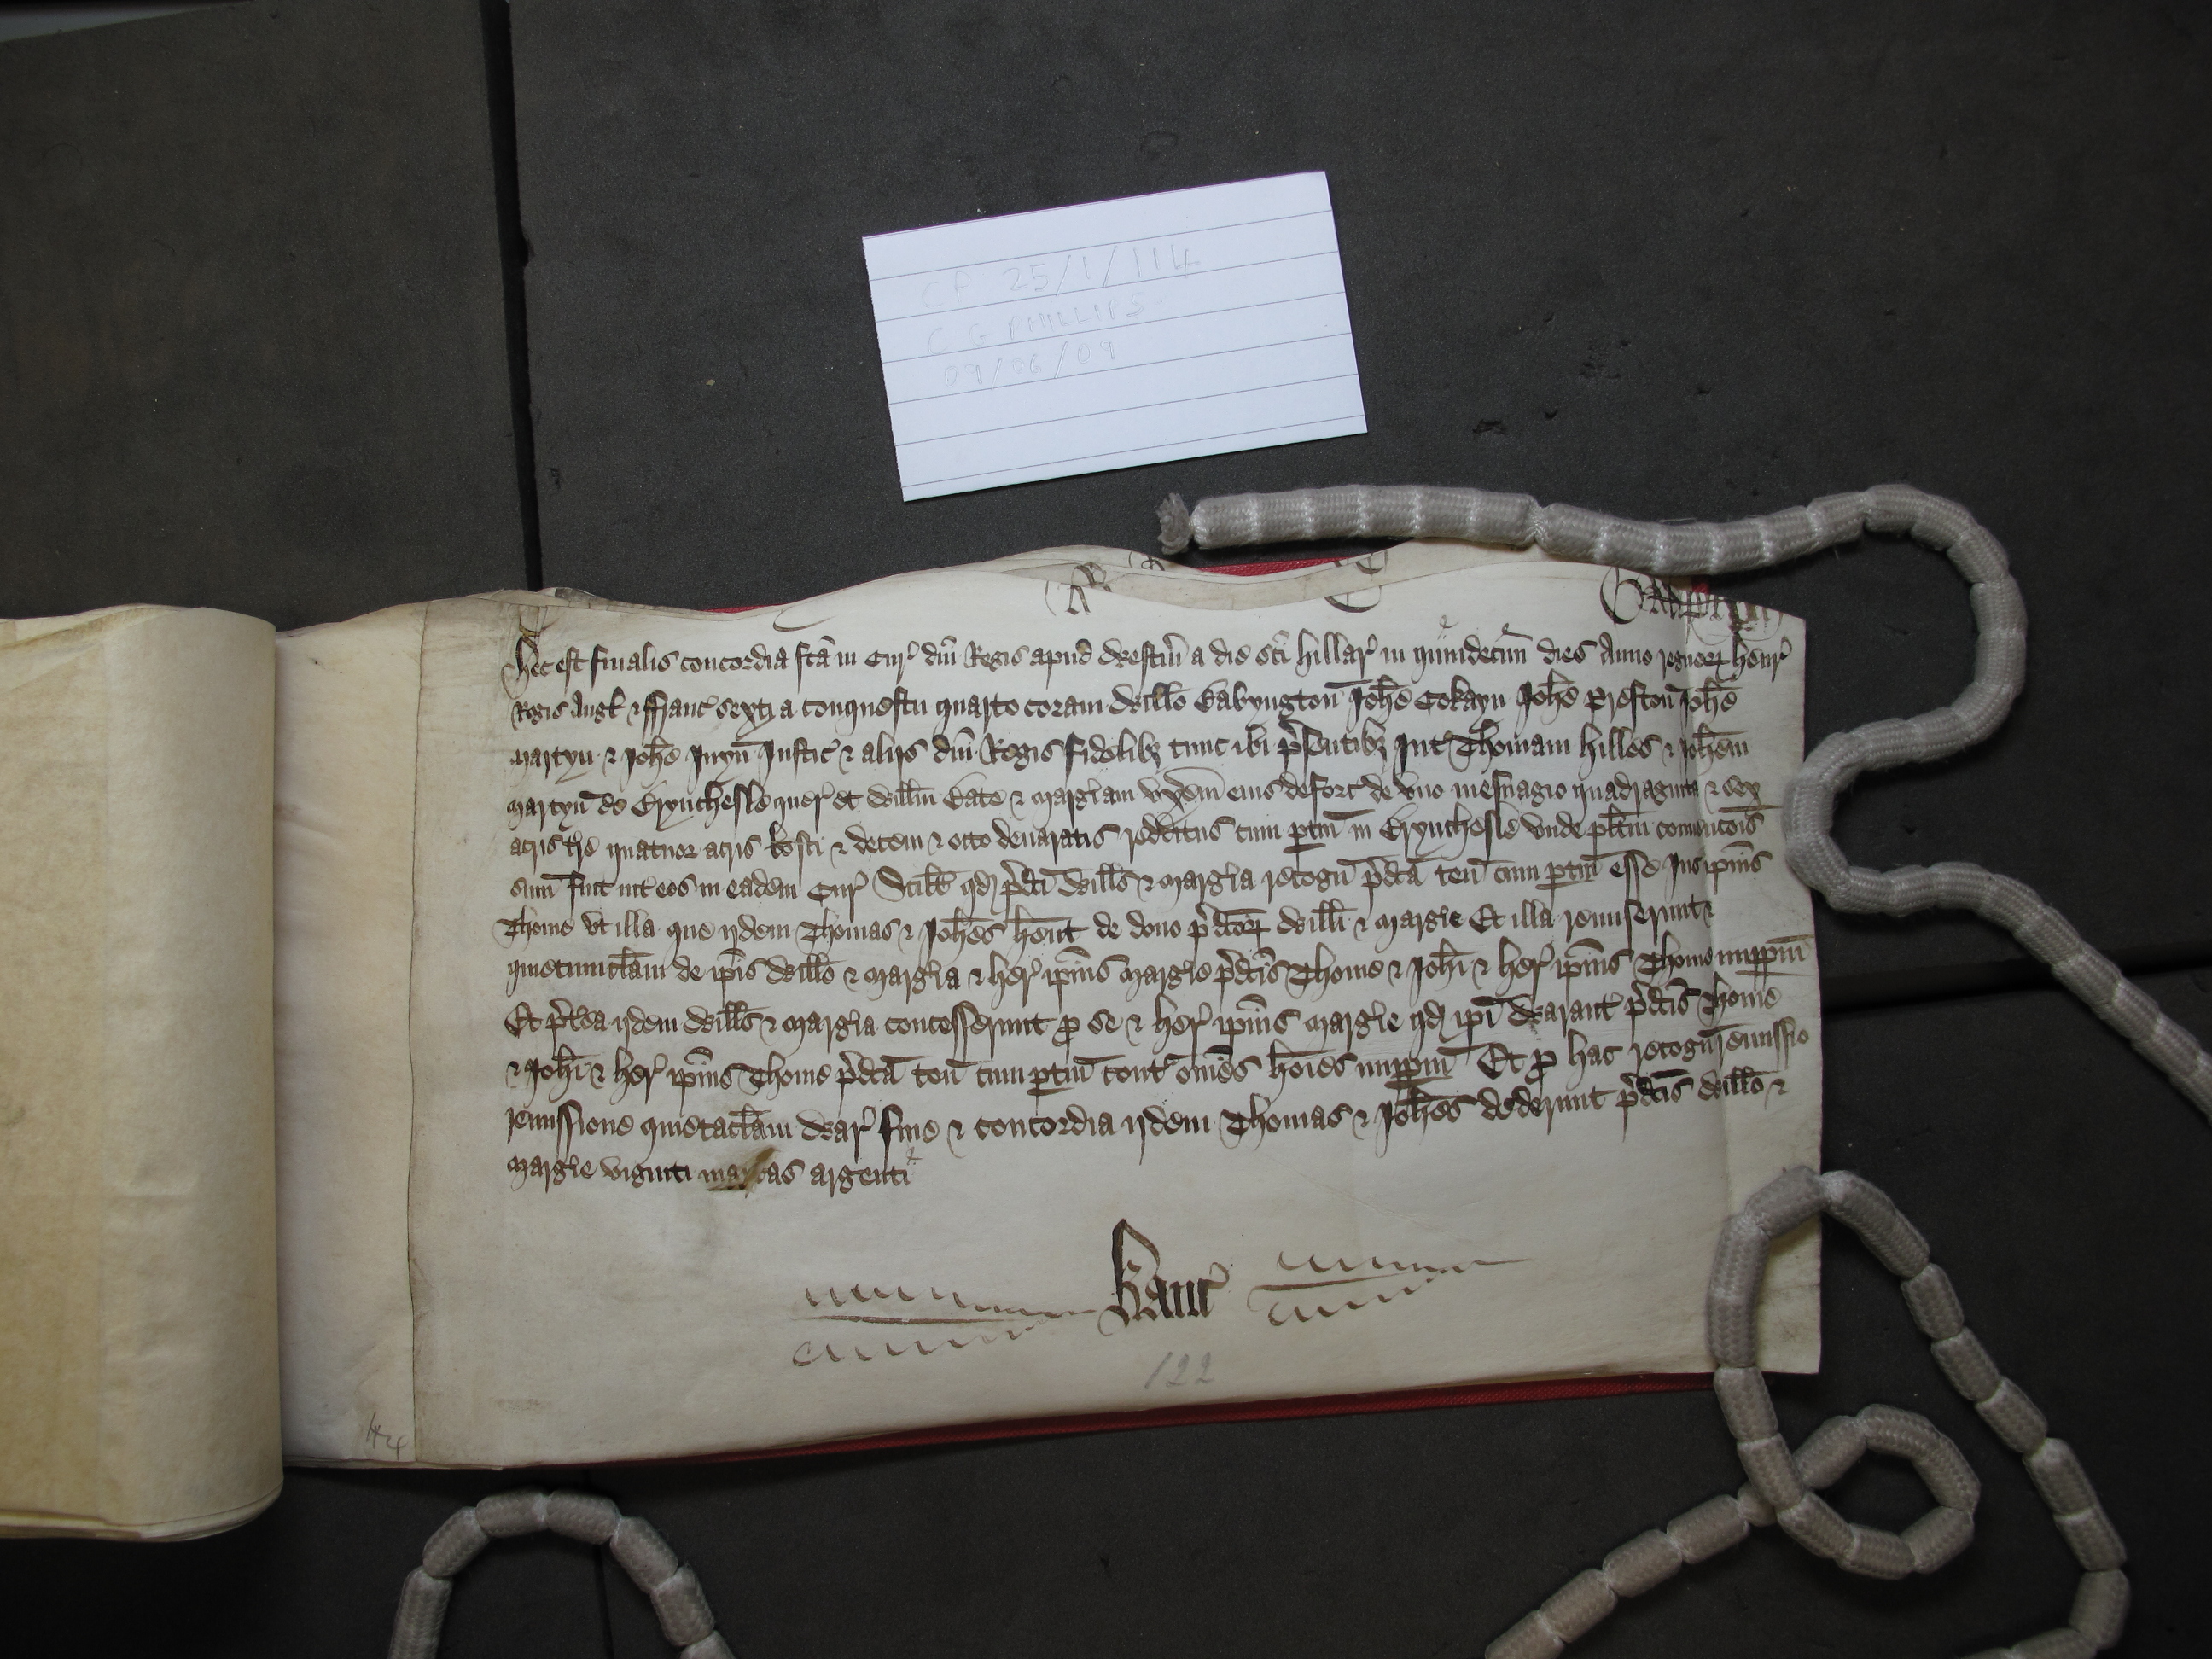 CP 25/1/114
C G PHILLIPS
09/06/09
Hec est finalis concordia fcā in Cur' dnī Regis apud Westm̄ a die scī hillar' in quindecim dies Anno regnoꝝ henr'
Regis Angł & ffranc' sexti a conquestu quarto coram Willō Babyngton̄ Joħe Cokayn Joħe Preston̄ Joħe
Martyn & Joħe Juyn̄ Justic' & alijs dnī Regis fidelibꝫ tunc ibi p̄sentibꝫ Int' Thomam Hilles & Joħem
Martyn̄ de Erynchesle quer' et Willm̄ Bate & Marg'iam vxēm eius deforc' de vno mesuagio quadraginta & sex
acris tr̄e quatuor acris bosci & decem & octo denaratis redditus cum ꝑtin̄ in Erynchesle vnde plītm conuencōis
sum̄ fuit int' eos in eadem Cur' Scilt' qđ p̄dcī Wills̄ & Marg'ia recogn̄ p̄dcā ten̄ cum ꝑtin̄ esse Jus ip̄ius
Thome vt illa que ijdem Thomas & Joħes hēnt de dono p̄dcoꝝ Willī & Marg'ie Et illa remiserunt &
quietumclam̄ de ip̄is Willō & Marg'ia & her' ip̄ius Marg'ie p̄dcīs Thome & Joħi & her' ip̄ius Thome imꝑpm̄
Et p̄t'ea ijdem Wills̄ & Marg'ia concesserunt ꝓ se & her' ip̄ius Marg'ie qđ ip̄i Warant' p̄dcīs Thome
& Joħi & her' ip̄ius Thome p̄dcā ten̄ cum ꝑtin̄ cont' om̄es hoīes imꝑpm̄ Et ꝓ hac recogn̄
remissione quietaclam̄ War' fine & concordia ijdem Thomas & Joħes dederunt p̄dcīs Willō &
Marg'ie viginti marcas argenti
Kanc'
122